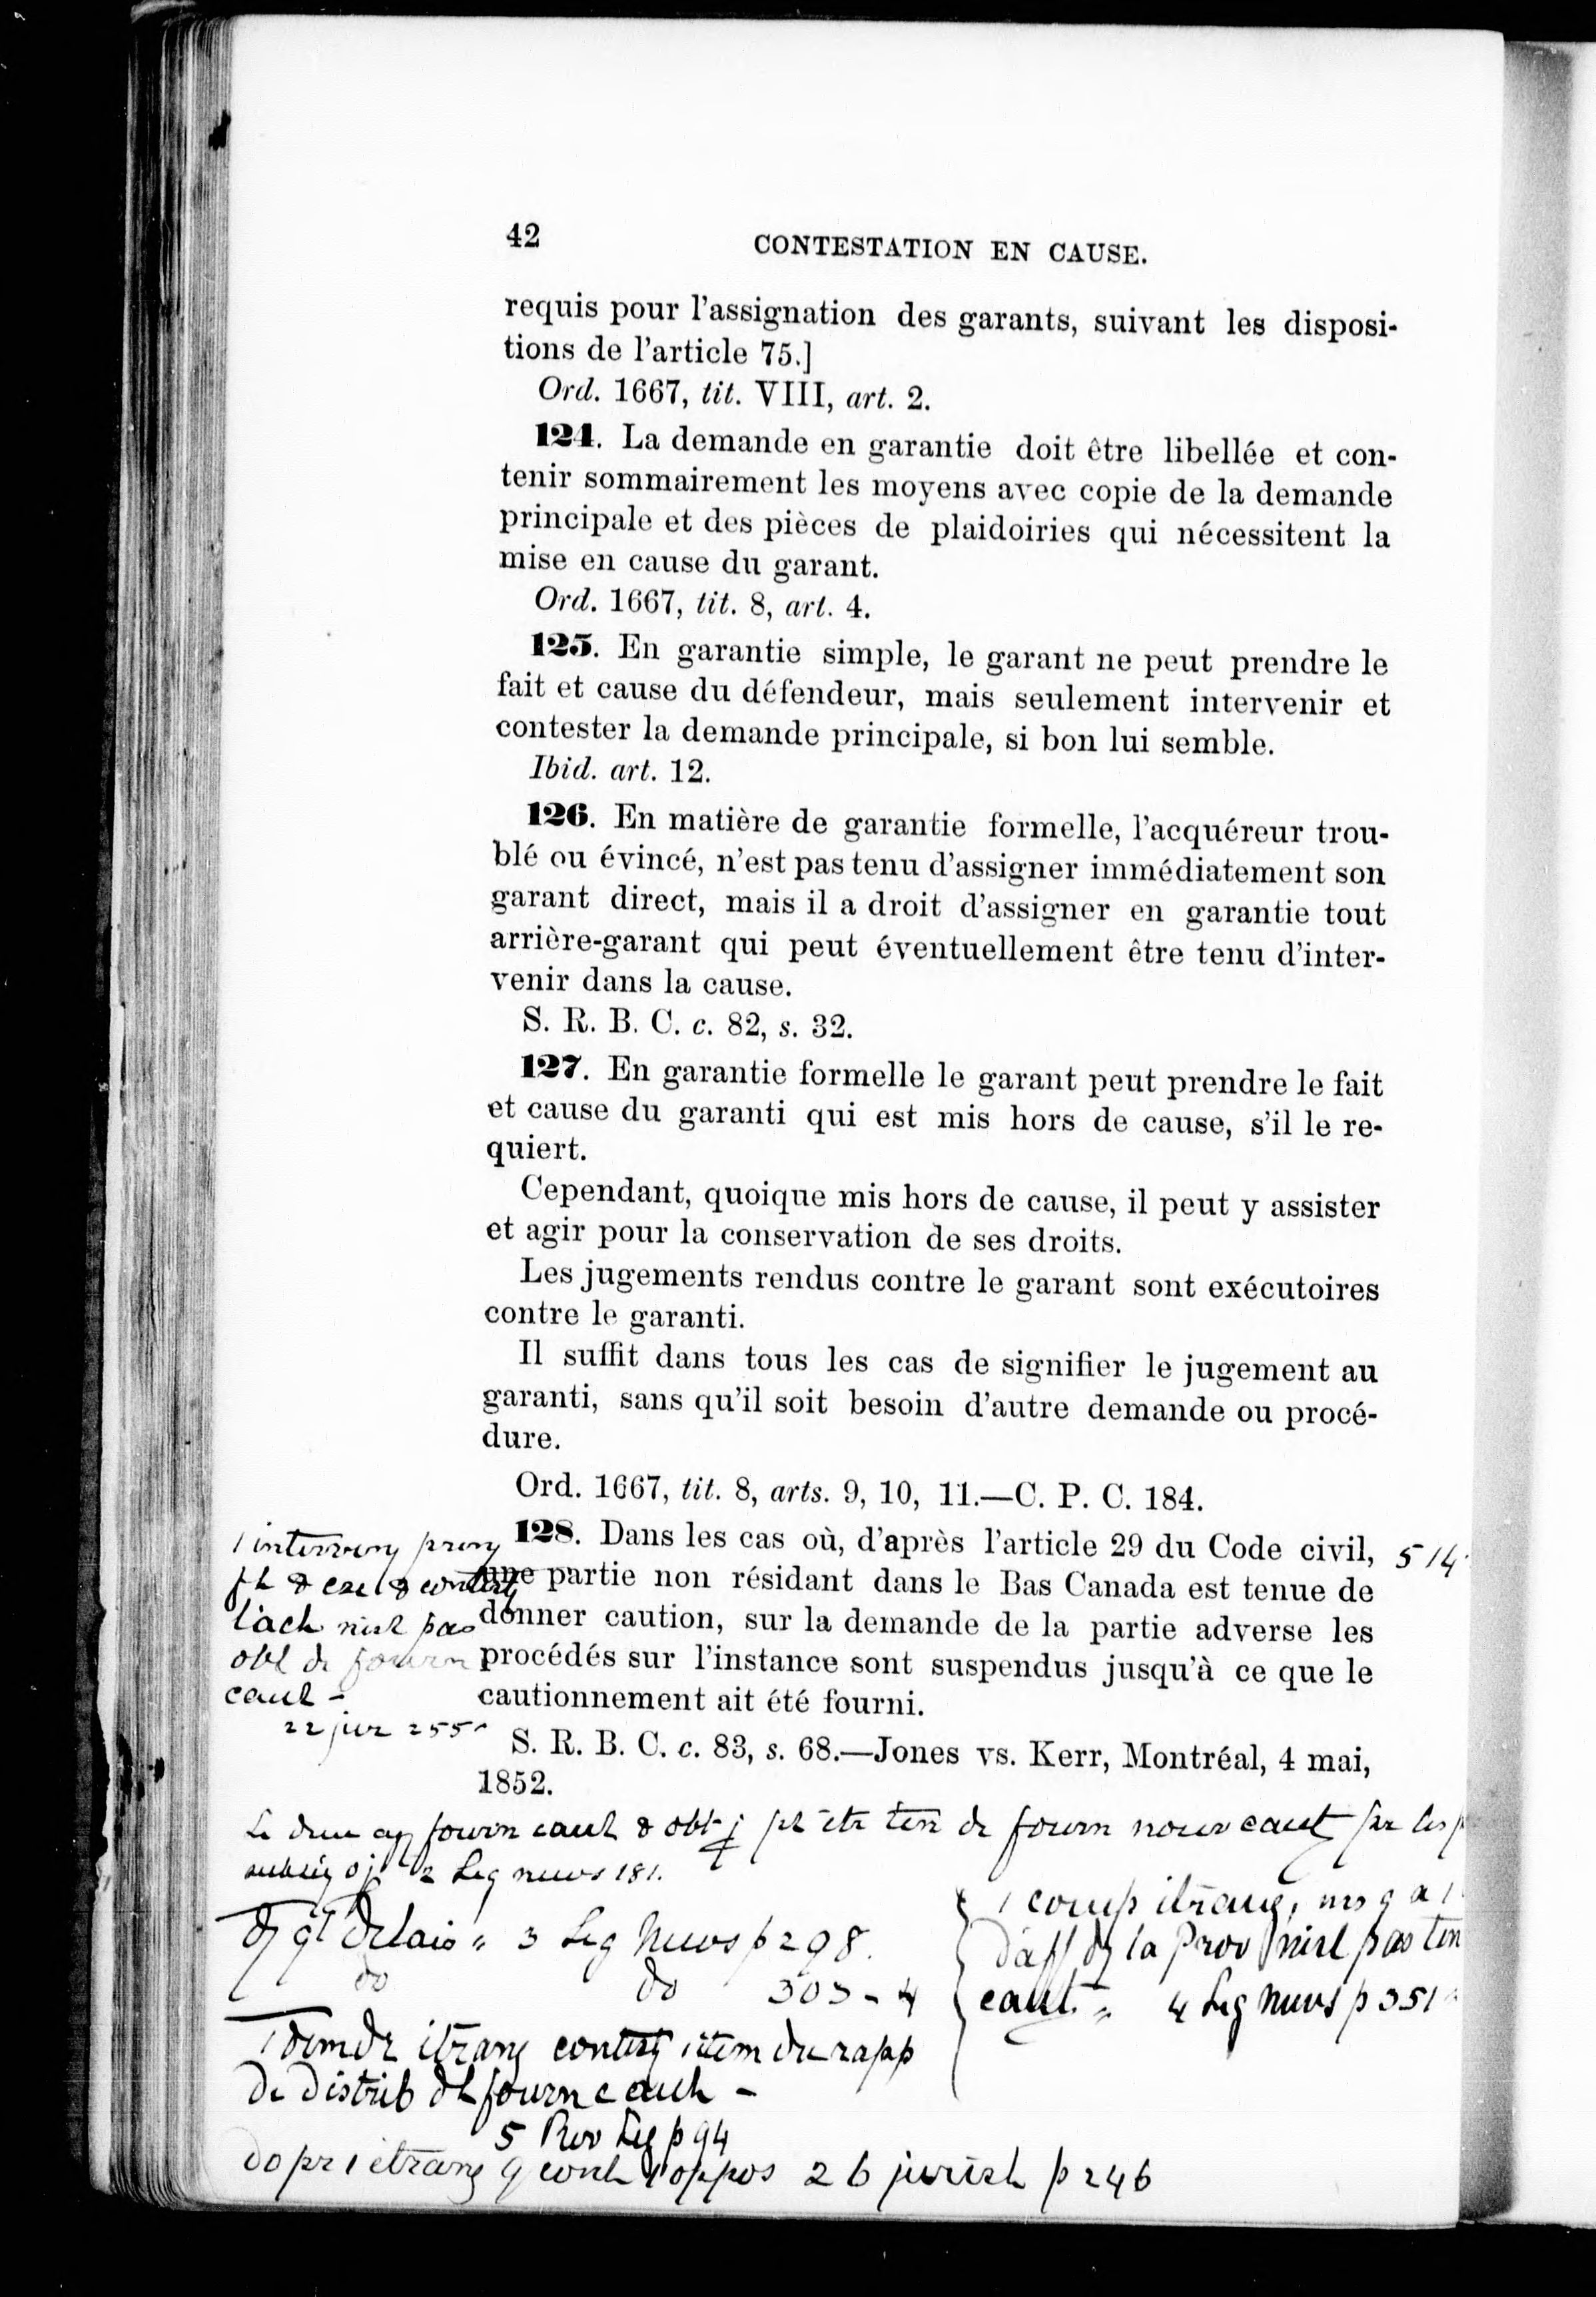 42 CONTESTATION EN CAUSE.
requis pour l'assignation des garants, suivant les disposi-
tions de l'article 75.]
Ord. 1667, tit. VIII, art. 2.
124. La demande en garantie doit être libellée et con-
tenir sommairement les moyens avec copie de la demande
principale et des pièces de plaidoiries qui nécessitent la
mise en cause du garant.
Ord. 1667, tit. 8, art. 4.
125. En garantie simple, le garant ne peut prendre le
fait et cause du défendeur, mais seulement intervenir et
contester la demande principale, si bon lui semble.
Ibid. art. 12.
126. En matière de garantie formelle, l'acquéreur trou-
blé ou évincé, n'est pas tenu d'assigner immédiatement son
garant direct, mais il a droit d'assigner en garantie tout
arrière-garant qui peut éventuellement être tenu d'inter-
venir dans la cause.
S. R. B. C. c. 82, s. 32.
127. En garantie formelle le garant peut prendre le fait
et cause du garanti qui est mis hors de cause, s'il le re-
quiert.
Cependant, quoique mis hors de cause, il peut y assister
et agir pour la conservation de ses droits.
Les jugements rendus contre le garant sont exécutoires
contre le garanti.
Il suffit dans tous les cas de signifier le jugement au
garanti, sans qu'il soit besoin d'autre demande ou procé-
dure.
Ord. 1667, tit. 8, arts. 9, 10, 11.—C. P. C. 184.
128. Dans les cas où, d'après l'article 29 du Code civil,
une partie non résidant dans le Bas Canada est tenue de
donner caution, sur la demande de la partie adverse les
procédés sur l'instance sont suspendus jusqu'à ce que le
cautionnement ait été fourni.
S. R. B. C. c. 83, s. 68.—Jones vs. Kerr, Montréal, 4 mai,
1852.
514
l'ach pas
obl de fourn
caut -
22 jur 255
fourn caut & obt de fourn nouv caut
2 Leg news 181.
delais " 3 Leg News p 298.
do do 303-4
etrang contest item du rapp
de distrib fourn caut -
5 Rev Leg p 94
do pr 1 etrang q cont l'oppos 26 jurist p 246
1 comp etrang,
d'aff la Prov pas ten
caut. " 4 Leg News p 351